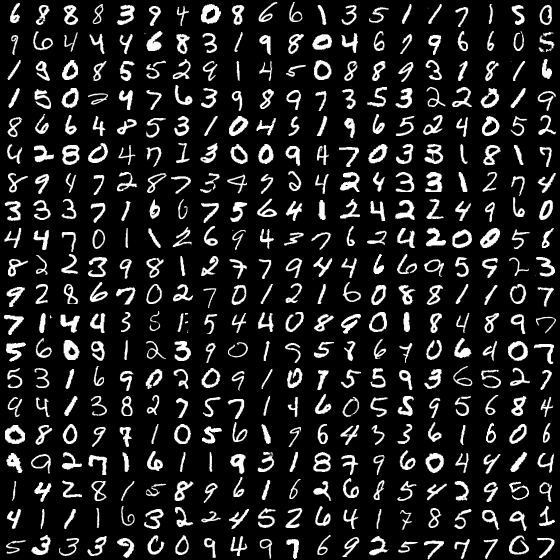 6 8 8 8 3 9 4 0 8 6 6 1 3 5 1 1 7 1 5 0
9 6 4 4 4 6 8 3 1 9 8 0 4 6 7 9 6 6 0 5
1 9 0 8 5 5 2 9 1 4 5 0 8 8 9 3 1 8 1 6
1 5 0 2 4 7 6 3 9 8 9 7 3 5 3 2 2 0 1 9
8 6 6 4 8 5 3 1 0 4 5 1 9 6 5 2 4 0 5 2
4 2 8 0 4 7 1 3 0 0 9 4 7 0 3 3 1 8 1 7
8 9 4 7 2 8 7 3 4 9 2 4 2 4 3 3 1 2 7 4
3 3 3 7 1 6 0 7 5 6 4 1 2 4 2 2 4 9 6 0
4 4 7 0 1 1 2 6 9 4 3 7 6 2 4 2 0 0 5 8
8 2 2 3 9 8 1 2 7 7 9 4 4 6 6 9 5 9 2 3
9 2 8 6 7 0 2 7 0 1 2 1 6 0 8 8 1 1 0 7
7 1 4 4 3 5 5 4 4 0 8 9 0 1 8 4 8 9 7
5 6 0 9 1 2 3 9 0 1 9 5 8 6 7 0 6 4 0 7
5 3 1 6 9 0 2 0 9 1 0 7 5 5 9 3 6 5 2 7
9 4 1 3 8 2 7 5 7 1 4 6 0 5 5 9 5 6 8 4
0 8 0 9 7 1 0 5 6 1 9 6 4 3 3 6 1 6 0 6
9 9 2 7 1 6 1 1 9 3 1 8 7 9 6 0 4 4 1 4
1 4 2 8 1 5 8 9 6 1 6 2 6 8 5 4 2 9 5 9
4 1 1 1 6 3 2 2 4 5 2 6 4 1 7 8 5 9 9 1
5 3 3 3 9 0 0 9 4 9 7 6 9 2 5 7 7 7 0 7